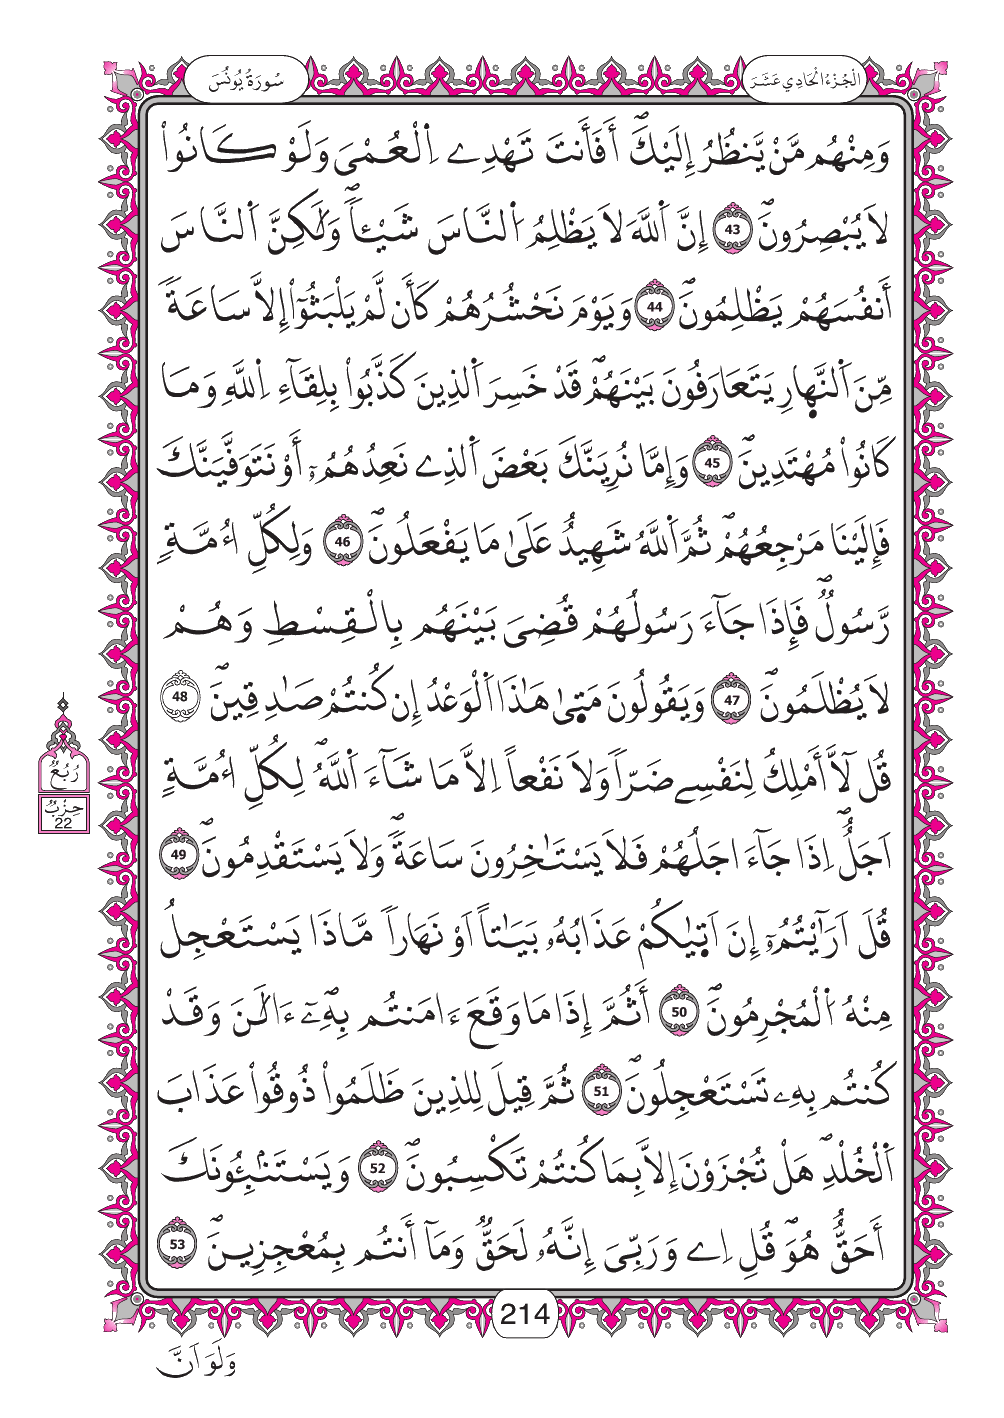 الْجُزْءُ الْحَادِي عَشَرَ
سُورَةُ يُونُسَ
وَمِنْهُم مَّنْ يَّنظُرُ إِلَيْكَۖ أَفَأَنتَ تَهْدِے اِ۬لْعُمْيَ وَلَوْ كَانُواْ
لَا يُبْصِرُونَۖ 43 إِنَّ اَ۬للَّهَ لَا يَظْلِمُ اُ۬لنَّاسَ شَيْـٔاًۖ وَلَٰكِنَّ اَ۬لنَّاسَ
أَنفُسَهُمْ يَظْلِمُونَۖ 44 وَيَوْمَ نَحْشُرُهُمْ كَأَن لَّمْ يَلْبَثُوٓاْ إِلَّا سَاعَةٗ
مِّنَ اَ۬لنَّهٰ۪ارِ يَتَعَارَفُونَ بَيْنَهُمْۖ قَدْ خَسِرَ اَ۬لذِينَ كَذَّبُواْ بِلِقَآءِ اِ۬للَّهِ وَمَا
كَانُواْ مُهْتَدِينَۖ 45 وَإِمَّا نُرِيَنَّكَ بَعْضَ اَ۬لذِے نَعِدُهُمُۥٓ أَوْ نَتَوَفَّيَنَّكَ
فَإِلَيْنَا مَرْجِعُهُمْۖ ثُمَّ اَ۬للَّهُ شَهِيدٌ عَلَىٰ مَا يَفْعَلُونَۖ 46 وَلِكُلِّ اُ۟مَّةٖ
رَّسُولٌۖ فَإِذَا جَآءَ رَسُولُهُمْ قُضِيَ بَيْنَهُم بِالْقِسْطِ وَهُمْ
لَا يُظْلَمُونَۖ 47 وَيَقُولُونَ مَت۪يٰ هَٰذَا اَ۬لْوَعْدُ إِن كُنتُمْ صَٰدِقِينَۖ 48
قُل لَّآ أَمْلِكُ لِنَفْسِے ضَرّاٗ وَلَا نَفْعاً اِلَّا مَا شَآءَ اَ۬للَّهُۖ لِكُلِّ اُ۟مَّةٍ
اَجَلٌۖ اِذَا جَآءَ اجَلُهُمْ فَلَا يَسْتَٰخِرُونَ سَاعَةٗۖ وَلَا يَسْتَقْدِمُونَۖ 49
قُلَ اَرَٰٓيْتُمُۥٓ إِنَ اَت۪يٰكُمْ عَذَابُهُۥ بَيَٰتاً اَوْ نَهَاراٗ مَّاذَا يَسْتَعْجِلُ
مِنْهُ اُ۬لْمُجْرِمُونَۖ 50 أَثُمَّ إِذَا مَا وَقَعَ ءَامَنتُم بِهِۦٓۖ ءَآلَٰنَ وَقَدْ
كُنتُم بِهِۦ تَسْتَعْجِلُونَۖ 51 ثُمَّ قِيلَ لِلذِينَ ظَلَمُواْ ذُوقُواْ عَذَابَ
اَ۬لْخُلْدِۖ هَلْ تُجْزَوْنَ إِلَّا بِمَا كُنتُمْ تَكْسِبُونَۖ 52 وَيَسْتَنۢبِـُٔونَكَ
أَحَقٌّ هُوَۖ قُلِ اِے وَرَبِّيَ إِنَّهُۥ لَحَقٌّۖ وَمَآ أَنتُم بِمُعْجِزِينَۖ 53
رُبُعُ
حِزْبٌ
22
214
وَلَوَ اَنَّ